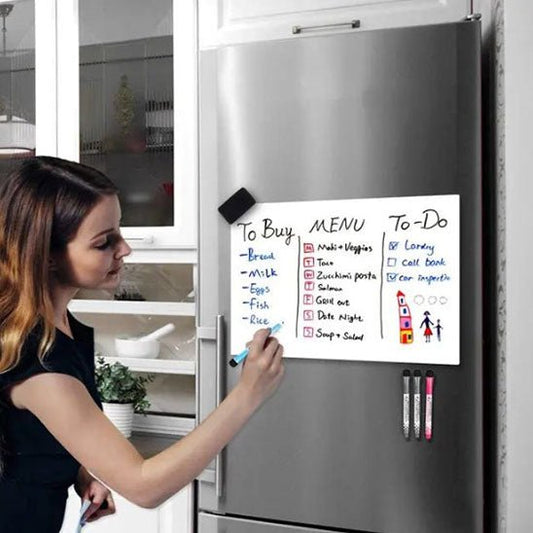 To Buy
-Bread
-Milk
-Eggs
-fish
-Rice
MENU
M Mahi + Veggies
T Taco
W Zucchini pasta
T Salmon
F Grill out
S Date Night
S Soup + Salad
To-Do
Lordry
Call bank
car inspectio